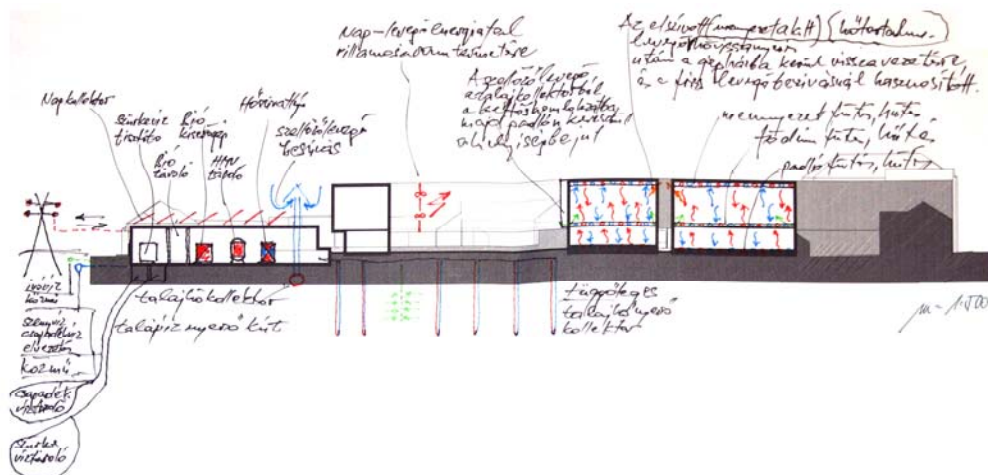 Nap-levegő energiatal
villamosáram termelésre
Az elszívott (mennyezet alatt) (hőtartalmu.
levegő hővisszanyerés
után a gépházba kerül visszavezetésre,
és a friss levegő beszívásnál hasznosított.
A szellőző levegő
a talajkollektorból
a kettőshomlokzatba,
majd padlón keresztül
a helyiségbe jut
mennyezet fűtés, hűtés
födém fűtés, hűtés
padló fűtés, hűtés
Napkollektor
szürkevíz
tisztító
Bió
tároló
Bió
kiserőgép
HMV
tároló
Hőszivattyú
szellőző levegő
beszívás
talajhőkollektor
talajvíz nyerő kút
függőleges
talajhőnyerő
kollektor
m = 1:500
ivóvíz
közmű
szennyvíz
elvezetés
közmű
csapadék
víztároló
szürke
víztároló